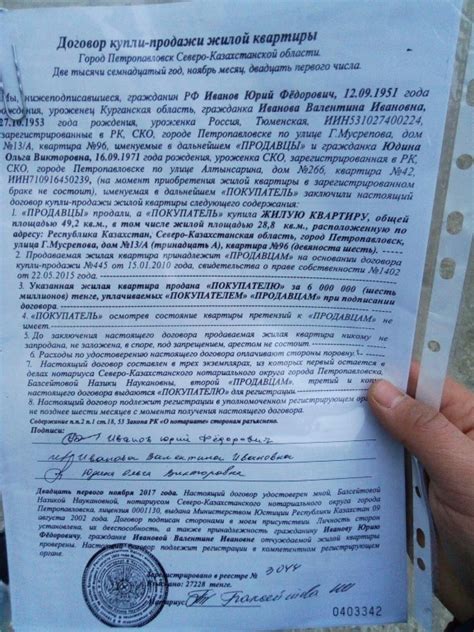 Договор купли-продажи жилой квартиры
Город Петропавловск Северо-Казахстанской области.
Две тысячи семнадцатый год, ноябрь месяц, двадцать первого числа.
ы, нижеподписавшиеся, гражданин РФ Иванов Юрий Фёдорович, 12.09.1951 года
рождения, уроженец Курганская область, гражданка Иванова Валентина Ивановна,
27.10.1953 года рождения, уроженка Россия, Тюменская, ИИН531027400224,
зарегистрированные в РК, СКО, городе Петропавловске по улице Г.Мусрепова, дом
№13/А, квартира №96, именуемые в дальнейшем «ПРОДАВЦЫ» и гражданка Юдина
Ольга Викторовна, 16.09.1971 года рождения, уроженка СКО, зарегистрированная в РК,
СКО, городе Петропавловске по улице Алтынсарина, дом №266, квартира №42,
ИИН710916450239, (на момент приобретения жилой квартиры в зарегистрированном
браке не состоит), именуемая в дальнейшем «ПОКУПАТЕЛЬ» заключили настоящий
договор купли-продажи жилой квартиры следующего содержания:
1. «ПРОДАВЦЫ» продали, а «ПОКУПАТЕЛЬ» купила ЖИЛУЮ КВАРТИРУ, общей
площадью 49,2 кв.м., в том числе жилой площадью 28,8 кв.м., расположенную по
адресу: Республика Казахстан, Северо-Казахстанская область, город Петропавловск,
улица Г.Мусрепова, дом №13/А (тринадцать А), квартира №96 (девяносто шесть).
2. Продаваемая жилая квартира принадлежит «ПРОДАВЦАМ» на основании договора
купли-продажи №445 от 15.01.2010 года, свидетельства о праве собственности №1402
от 22.05.2015 года.
3. Указанная жилая квартира продана «ПОКУПАТЕЛЮ» за 6 000 000 (шесть
миллионов) тенге, уплачиваемых «ПОКУПАТЕЛЕМ» «ПРОДАВЦАМ» при подписании
договора.
4. «ПОКУПАТЕЛЬ» осмотрев состояние квартиры претензий к «ПРОДАВЦАМ» не
имеет.
5. До заключения настоящего договора продаваемая жилая квартира никому не
запродана, не заложена, в споре, под запрещением, арестом не состоит.
6. Расходы по удостоверению настоящего договора оплачивают стороны поровну.
7. Настоящий договор составлен в трех экземплярах, из которых первый остается в
делах нотариуса Северо-Казахстанского нотариального округа города Петропавловска,
Балсейтовой Назики Наукановны, второй «ПРОДАВЦАМ», третий и
настоящего договора выдаются «ПОКУПАТЕЛЮ» для регистрации.
8. Настоящий договор подлежит регистрации в уполномоченном регистрирующем
не позднее шести месяцев с момента получения настоящего договора.
Содержание п.п.2 п.1 ст.18, 53 Закона РК «О нотариате» сторонам разъяснено.
Подписи:
Иванов Юрий Фёдорович
Иванова Валентина Ивановна
Юдина Ольга Викторовна
Двадцать первого ноября 2017 года. Настоящий договор удостоверен мной, Балсейтовой
Назикой Наукановной, нотариусом Северо-Казахстанского нотариального округа города
Петропавловска, лицензия 0001130, выдана Министерством Юстиции Республики Казахстан 09
августа 2002 года. Договор подписан сторонами в моем присутствии. Личность сторон
установлена, их дееспособность, а также принадлежность гражданину Иванову Юрию
Фёдоровичу, гражданке Ивановой Валентине Ивановне отчуждаемой жилой квартиры
проверены. Настоящий договор подлежит регистрации в компетентном регистрирующем
органе.
Зарегистрировано в реестре № 3044
Взыскано: 27228 тенге.
Нотариус:
0403342